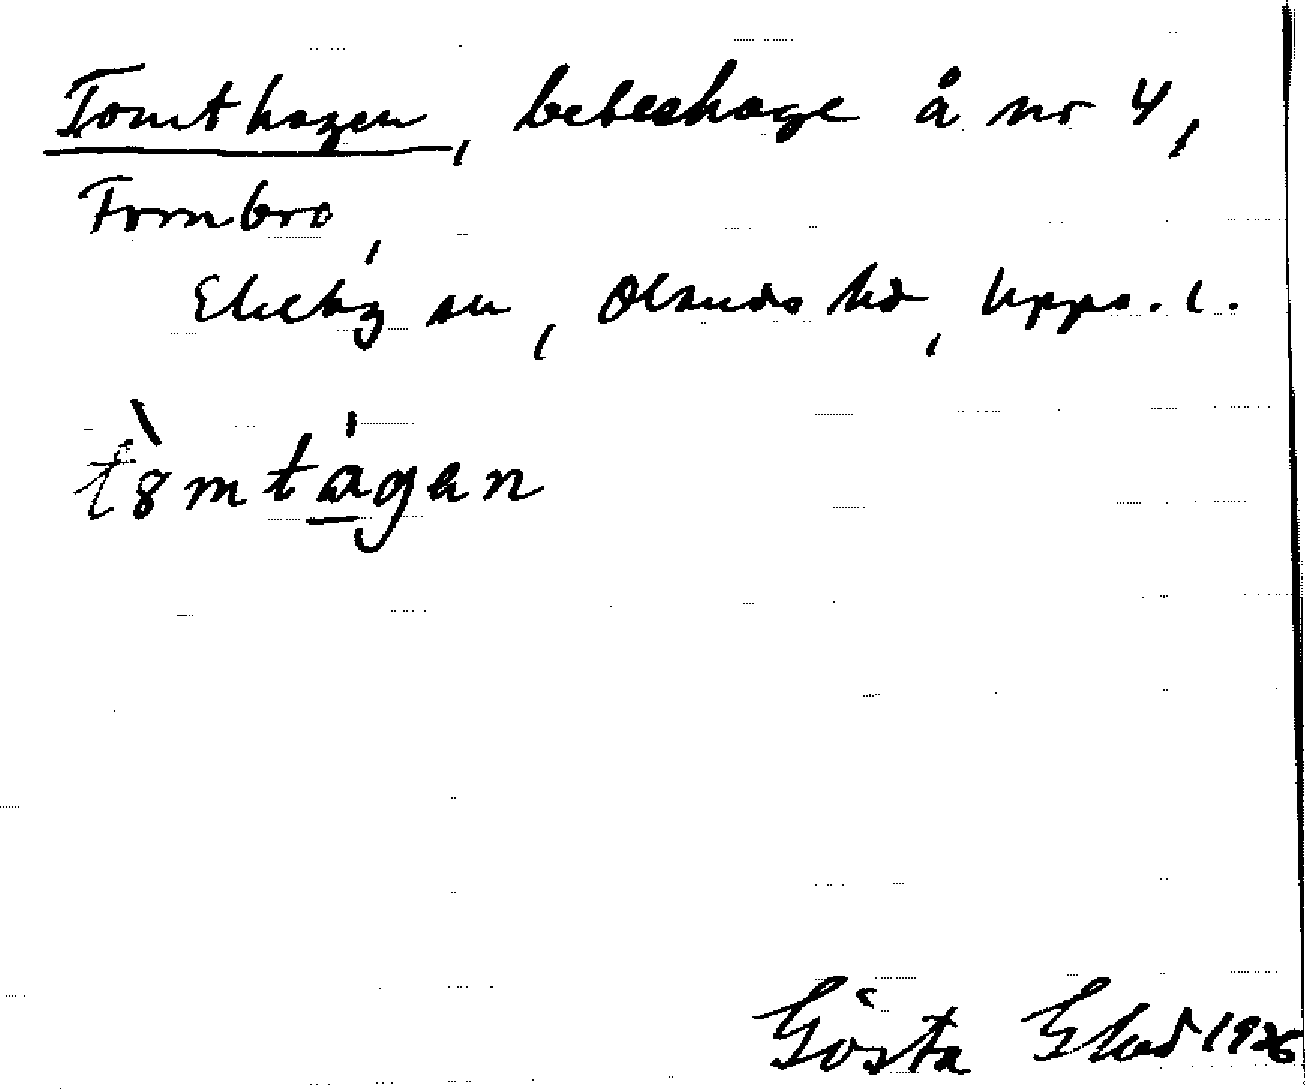 Tomthagen, beteshage å nr 4,
Fornbro,
Ekeby sn, Olands hd, Upps. l.
t8mtagen
Gösta Ekad 1926